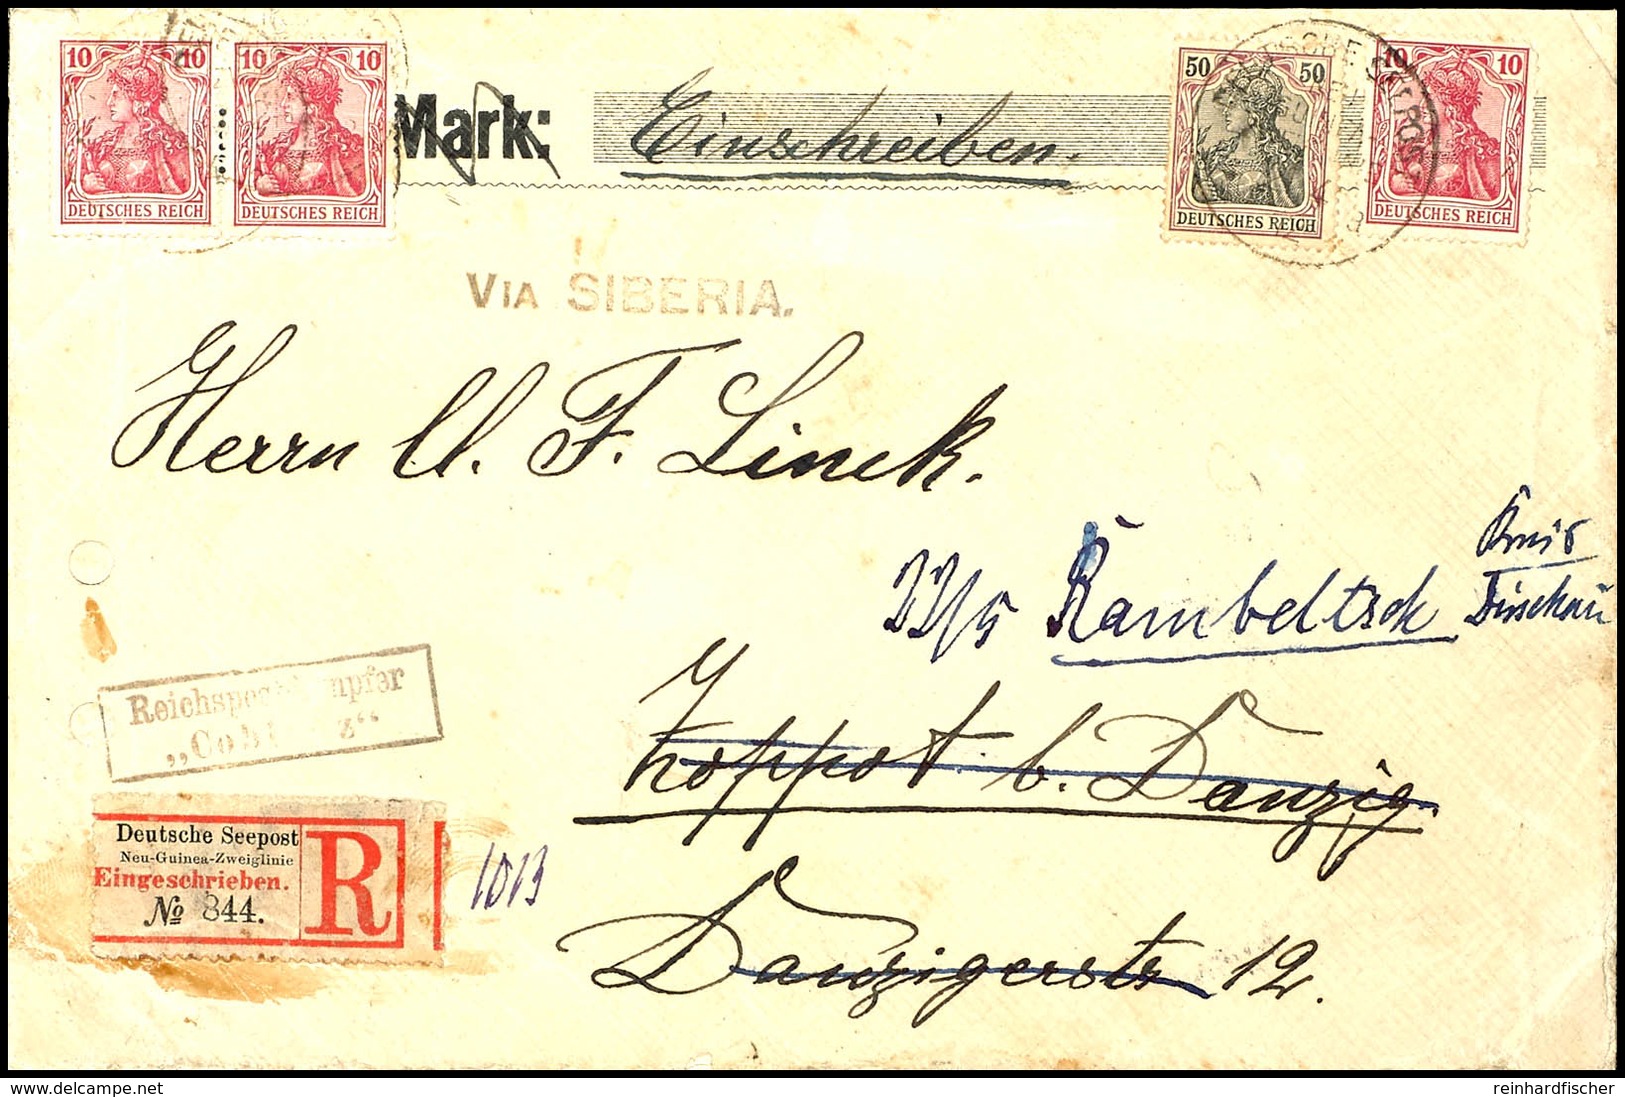 10 10 10 10 50 50 10 10
Mark: Einschreiben.
DEUTSCHES REICH DEUTSCHES REICH DEUTSCHES REICH DEUTSCHES REICH
VIA SIBERIA.
Herrn
F. Linck.
Rambeltsch
Zoppot b. Danzig.
Danzigerstr 12.
Deutsche Seepost
Neu-Guinea-Zweiglinie
Eingeschrieben.
№ 844.
R
1013
www.delcampe.net
reinhardfischer